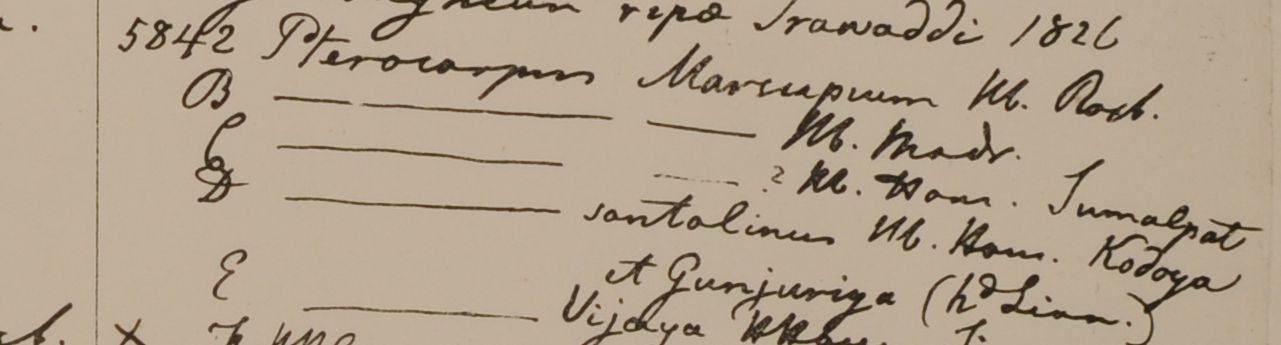 ripæ Irawaddi 1826
5842 Pterocarpus Marsupium Hb. Roxb.
B — — Hb. Madr.
C — — ? Hb. Ham. Sumalpat
D — santalinus Hb. Ham. Kodoya
et Gunjuriya (hᵈ Linn.)
E — Vijaya